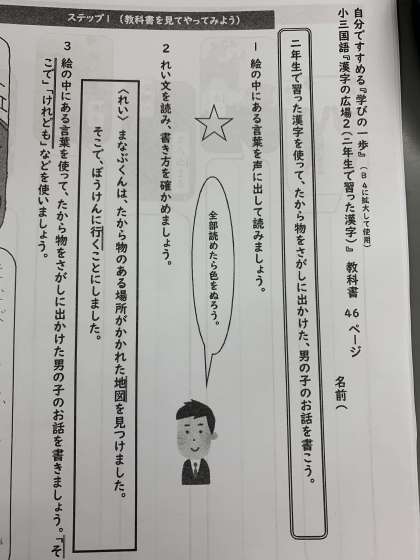 自分ですすめる『学びの一歩』(B4に拡大して使用)
小三国語『漢字の広場2(二年生で習った漢字)』 教科書 46ページ 名前(
二年生で習った漢字を使って、たから物をさがしに出かけた、男の子のお話を書こう。
ステップ1(教科書を見てやってみよう)
1 絵の中にある言葉を声に出して読みましょう。
全部読めたら色をぬろう。
2 れい文を読み、書き方を確かめましょう。
〈れい〉 まなぶくんは、たから物のある場所がかかれた地図を見つけました。
そこで、ぼうけんに行くことにしました。
3 絵の中にある言葉を使って、たから物をさがしに出かけた男の子のお話を書きましょう。「そ
こで」「けれども」などを使いましょう。